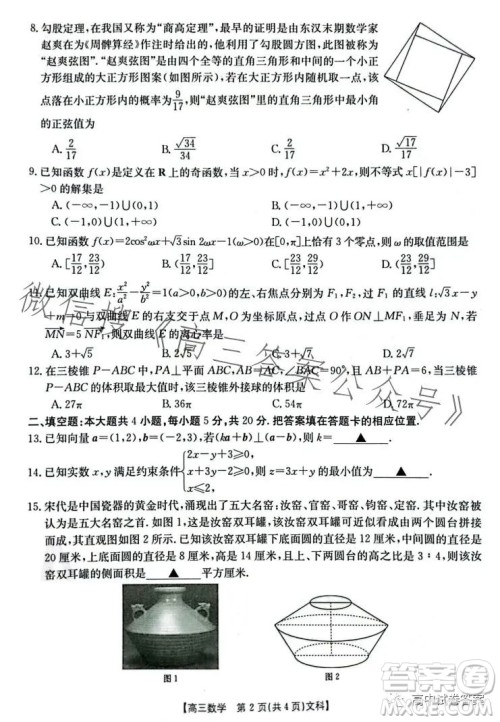 8. 勾股定理,在我国又称为“商高定理”,最早的证明是由东汉末期数学家
赵爽在《周髀算经》作注时给出的,他利用了勾股圆方图,此图被称为
“赵爽弦图”.“赵爽弦图”是由四个全等的直角三角形和中间的一个小正
方形组成的大正方形图案(如图所示),若在大正方形内随机取一点,该点
落在小正方形内的概率为9/17,则“赵爽弦图”里的直角三角形中最小角
的正弦值为
A. 2/17 B. √34/34 C. 5/17 D. √17/17
9. 已知函数 f(x)是定义在 R 上的奇函数,当 x>0 时,f(x)=x²+2x,则不等式 x[|f(x)|-3]<
0 的解集是
A. (-∞,-1)∪(0,1) B. (-∞,-1)∪(1,+∞)
C. (-1,0)∪(1,+∞) D. (-1,0)∪(0,1)
10. 已知函数 f(x)=2cos²ωx+√3sin 2ωx-1(ω>0)在[0,π]上恰有4个极值点,则 ω 的取值范围是
A. [17/12,23/12) B. (17/12,23/12] C. [23/12,29/12) D.
11. 已知双曲线 E: x²/a²-y²/b²=1(a>0,b>0)的左、右焦点分别为 F₁,F₂,过 F₁ 的直线 l:√3x-y
+m=0 与双曲线 E 的右支交于点 M,O 为坐标原点,过点 O 作 ON⊥MF₁,垂足为 N,
MN=5NF₁,则双曲线 E 的离心率是
A. 3+√5 B. 3+√7 C. D.
12. 在三棱锥 P-ABC 中,PA⊥平面 ABC,∠BAC=90°,且 PA+AB+AC=6,当三棱锥 P-
ABC 的体积取最大值时,该三棱锥外接球的体积是
A. 27π B. 36π C. D. 72π
二、填空题:本大题共 4 小题,每小题 5 分,共 20 分. 把答案填在答题卡的相应位置.
13. 已知向量 a=(1,2),b=(-2,3),若(ka+b)⊥(a-b),则 k= ▲ .
14. 已知实数 x,y 满足约束条件
2x-y-2≥0,
x+3y-2≥0,
≤0,
则 的最小值为 ▲ .
15. 宋代是中国瓷器的黄金时代,涌现出了五大名窑:汝窑、官窑、哥窑、钧窑、定窑. 其中汝窑被
认为是五大名窑之首. 如图 1,这是汝窑双耳罐,该汝窑双耳罐可近似看成由两个圆台拼接而
成,其直观图如图 2 所示. 已知该汝窑双耳罐下底面圆的直径是 12 厘米,中间圆的直径是
20 厘米,上底面圆的直径是 8 厘米,且上、下两圆台的高之比是 3∶4,则
该汝
窑双耳罐的侧面积是 ▲ 平方厘米.
图1
图2
【高三数学 第 2 页(共 4 页)文科】
微信搜《高三答案公众号》
高中试卷答案